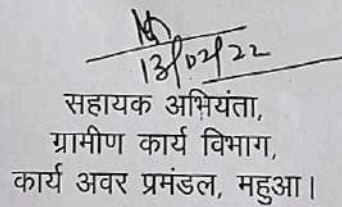 13/02/22
सहायक अभियंता,
ग्रामीण कार्य विभाग,
कार्य अवर प्रमंडल, महुआ।